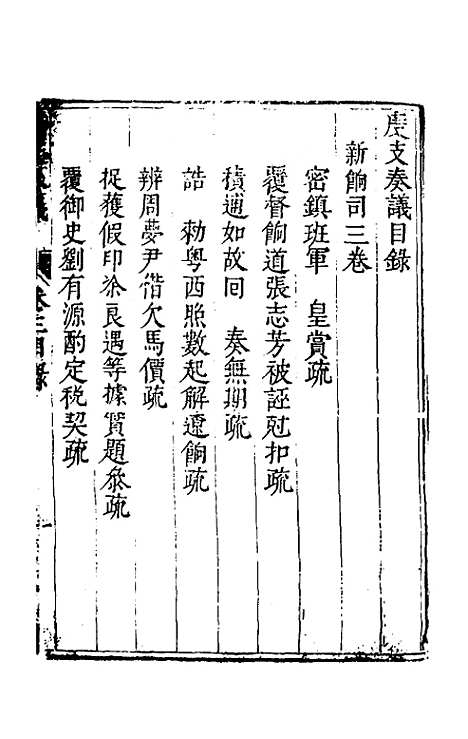 度支奏議目錄
新餉司三卷
密鎮班軍　皇賞疏
覆督餉道張志芳被誣尅扣疏
積逋如故回　奏無期疏
請　勅粵西照數起解遼餉疏
辨周夢尹借欠馬價疏
捉獲假印余良遇等據實題叅疏
覆御史劉有源酌定稅契疏
卷三目錄
一